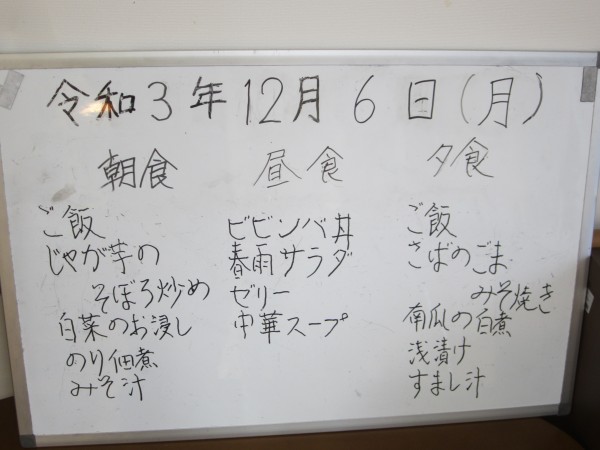 令和3年12月6日(月)
朝食
ご飯
じゃが芋の
そぼろ炒め
白菜のお浸し
のり佃煮
みそ汁
昼食
ビビンバ丼
春雨サラダ
ゼリー
中華スープ
夕食
ご飯
さばのごま
みそ焼き
南瓜の白煮
浅漬け
すまし汁